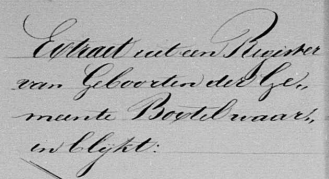 Extract uit een Register
van Geboorten der Ge„
meente Boxtel waar„
in blijkt: